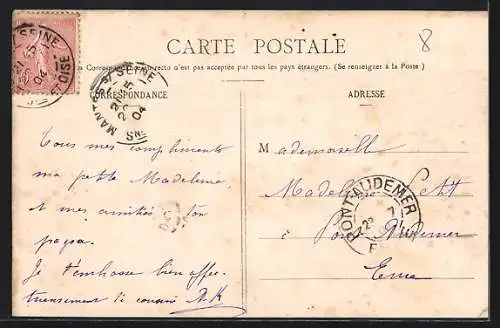 CARTE POSTALE
8
La Correspondance au recto n'est pas acceptée par tous les pays étrangers. (Se renseigner à la Poste)
CORRESPONDANCE
ADRESSE
MANTES S/ SEINE
21
5
04
Tous mes compliments
ma petite Madeleine
et mes amitiés à ton
papa.
Je t'embrasse bien affec-
tueusement ta cousine
Mademoiselle
Madeleine
à Pont Audemer
Eure
PONT-AUDEMER